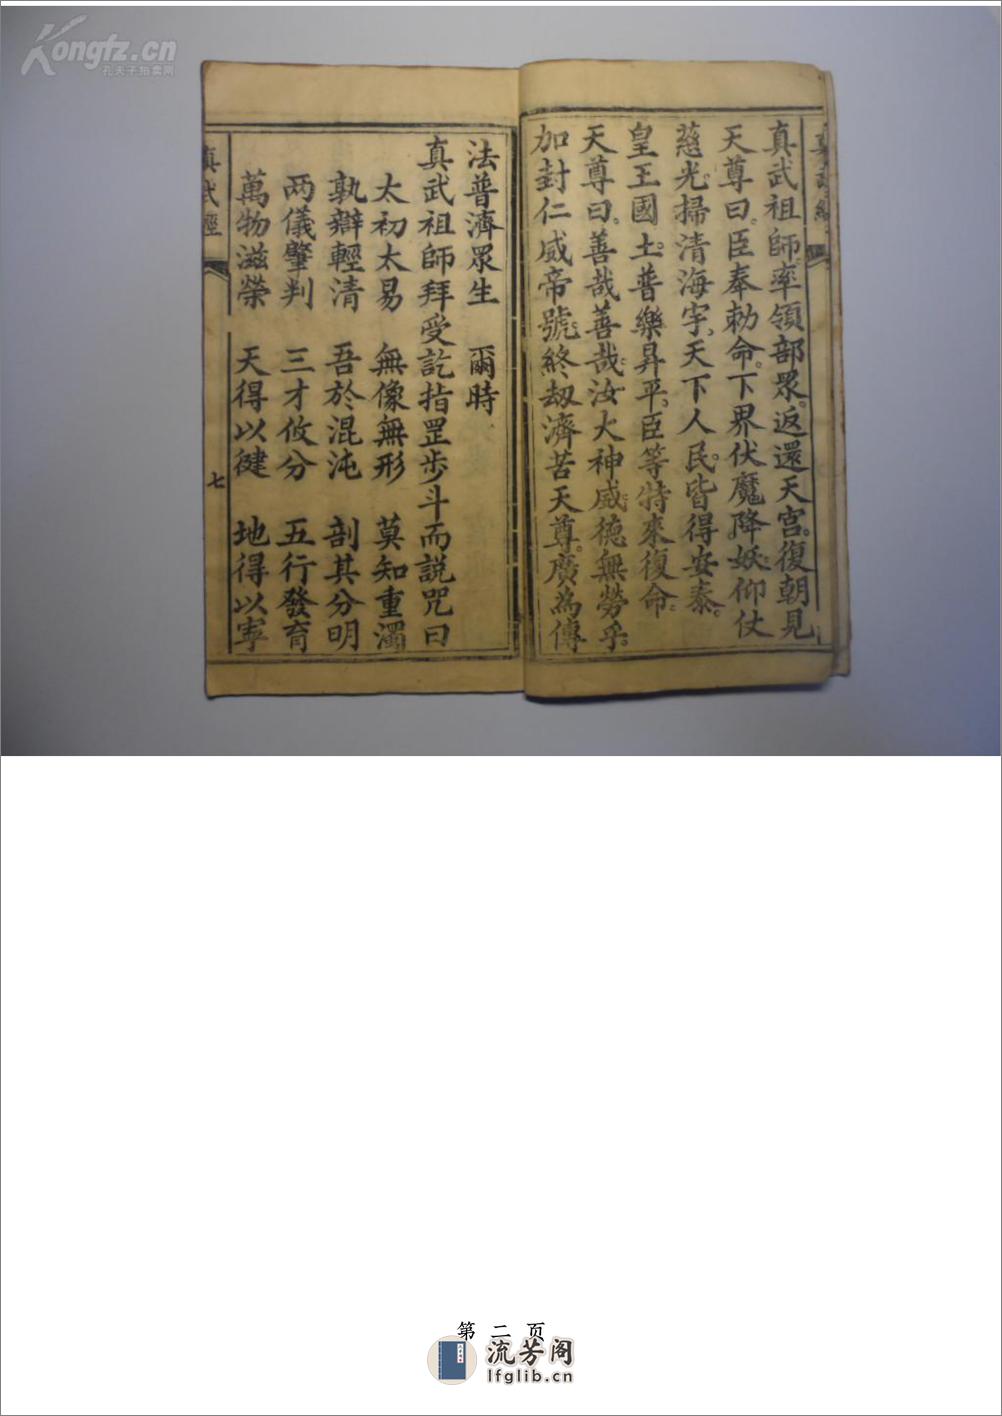 Kongfz.cn
孔夫子拍卖网
真武祖師。率領部眾。返還天宮。復朝見
天尊曰。臣奉勅命。下界伏魔降妖。仰仗
慈光。掃清海宇。天下人民。皆得安泰。
皇王國土。普樂昇平。臣等特來復命。
天尊曰。善哉善哉。汝大神威德無勞乎。
加封仁威帝號。終刼濟苦天尊。廣為傳
法普濟眾生 爾時
真武祖師拜受訖指罡步斗而說咒曰
太初太易 無像無形 莫知重濁
孰辯輕清 吾於混沌 剖其分明
两儀肇判 三才攸分 五行發育
萬物滋榮 天得以健 地得以寧
真武經
七
第 二 页
流芳阁
lfglib.cn